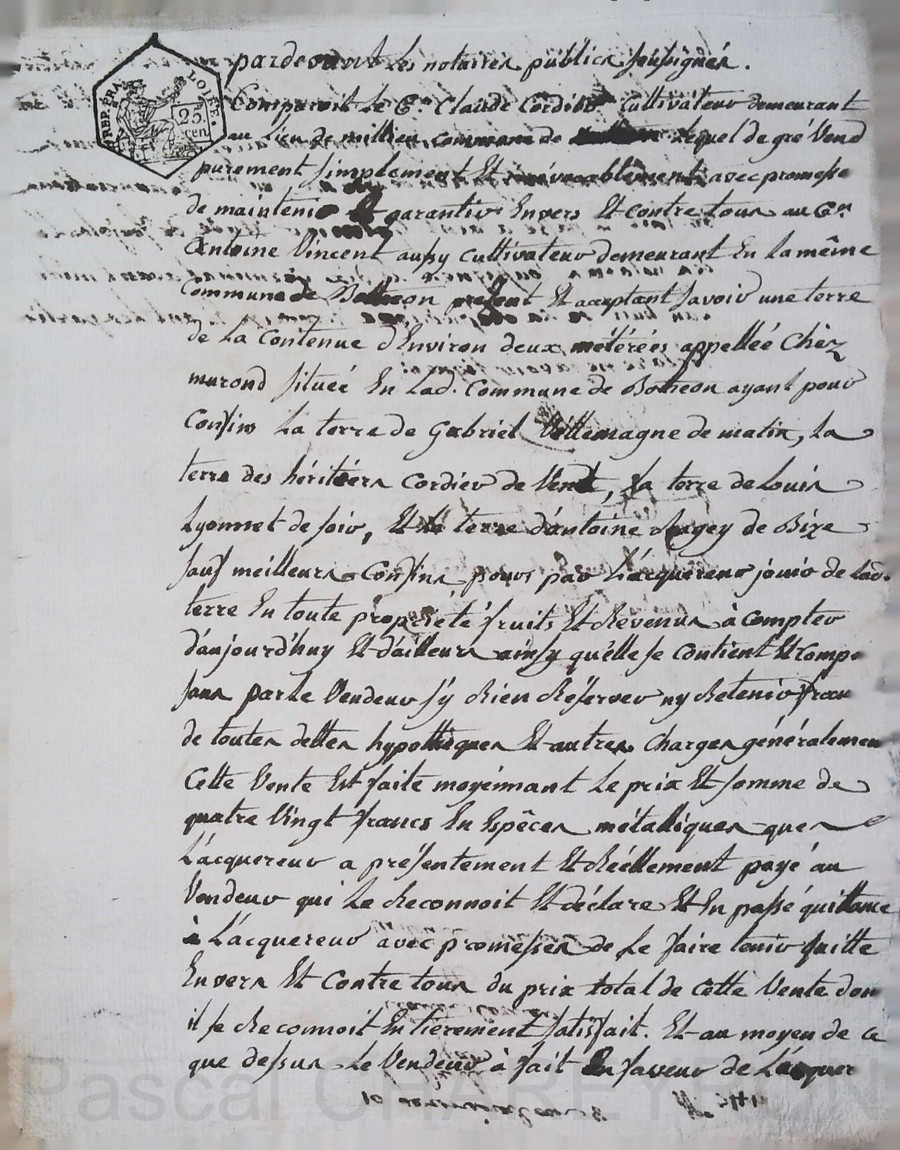 REP. FRA. LOIRE.
25. cen
pardevant Les notaires publics soussignés.
Comparoit Le C.en Claude Cordier Cultivateur demeurant
au Lieu de millieu, commune de Lequel de gré Vend
purement simplement Et irrévocablement, avec promesse
de maintenir Et garantir Envers Et contre tous au C.en
Antoine Vincent aussy cultivateur demeurant En La même
Commune de Botheon présent Et acceptant savoir une terre
de La Contenue d'Environ deux métérées appellée Chèz
murond située En Lad. Commune de Botheon ayant pour
Confins La terre de Gabriel Villemagne de matin, La
terre des héritiers Cordier de Vent, La terre de Louis
Lyonnet de soir, Et La terre d'antoine de Bize
sauf meilleurs Confins pour par L'acquereur jouir de Lad.
terre En toute propriété fruits Et Revenus à Compter
d'aujourd'huy Et d'ailleurs ainsy qu'elle se Contient Et Compo
sans par Le Vendeur s'y Rien Réserver ny Retenir fran
de toutes dettes hypothèques Et autres Charges généralemen
Cette Vente Est faite moyénnant Le prix Et somme de
quatre Vingt francs En Espêces métalliques que
L'acquereur a présentement Et Réellement payé au
Vendeur qui Le Reconnoit Et déclare Et En passé quittance
à L'acquereur avec promesses de Le faire tenir quitte
Envers Et Contre tous du prix total de Cette Vente don
il se Reconnoit Entièrement satisfait. Et au moyen de ce
que dessus Le Vendeur à fait En faveur de L'acquer